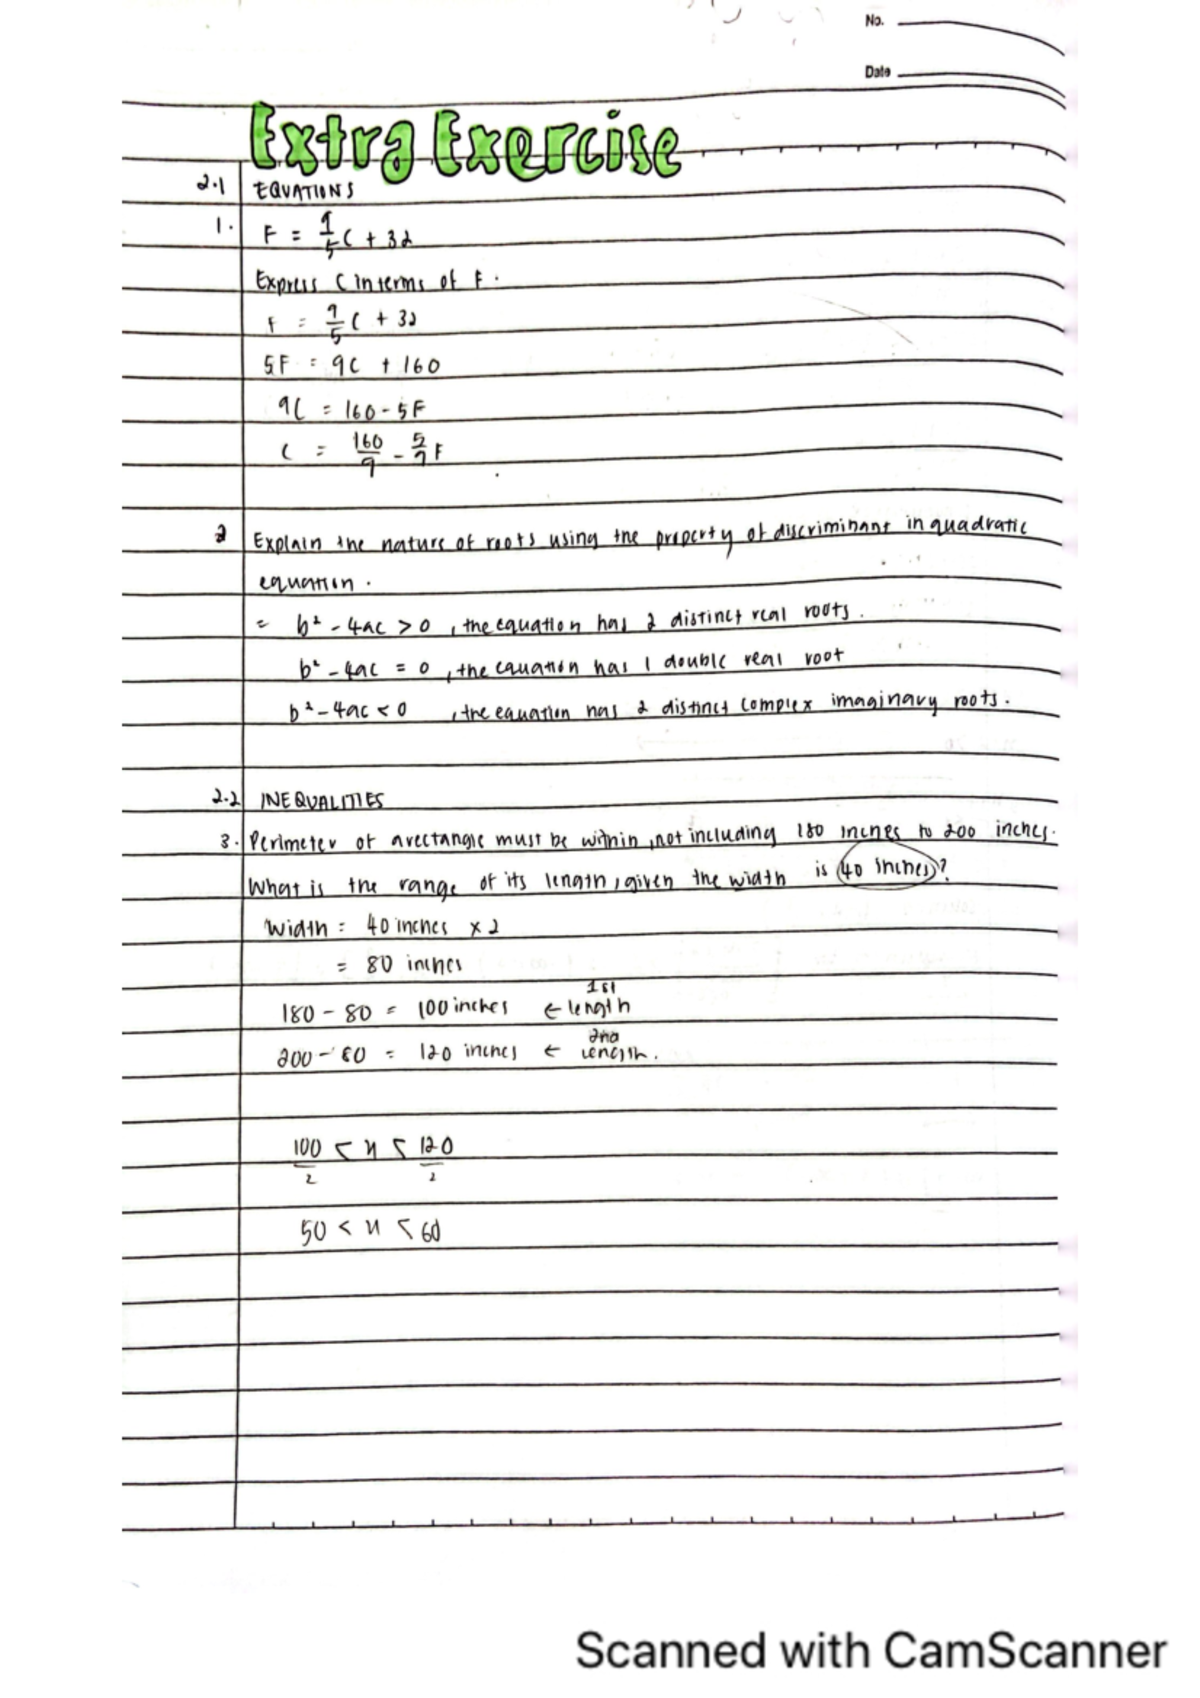 No.
Date
Extra Exercise
2.1 EQUATIONS
1. F = 9/5 C + 32
Express C in terms of F.
F = 9/5 C + 32
5F = 9C + 160
9C = 160 - 5F
C = 160/9 - 5/9 F
2 Explain the nature of roots using the property of discriminant in quadratic
equation.
= b² - 4ac > 0, the equation has 2 distinct real roots.
b² - 4ac = 0, the equation has 1 double real root
b² - 4ac < 0, the equation has 2 distinct complex imaginary roots.
2.2 INEQUALITIES
3. Perimeter of a rectangle must be within, not including 180 inches to 200 inches.
What is the range of its length, given the width is 40 inches?
Width = 40 inches x 2
= 80 inches
180 - 80 = 100 inches ← 1st length
200 - 80 = 120 inches ← 2nd length.
100/2 < x < 120/2
50 < x < 60
Scanned with CamScanner